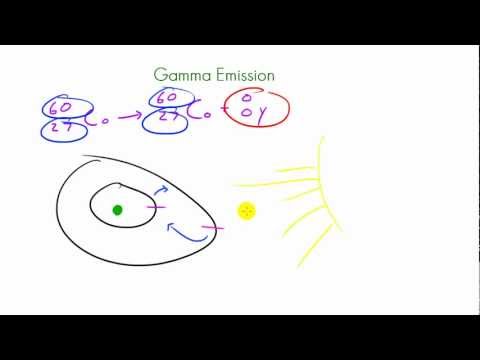 Gamma Emission
60 27 Co → 60 27 Co + 0 0 γ